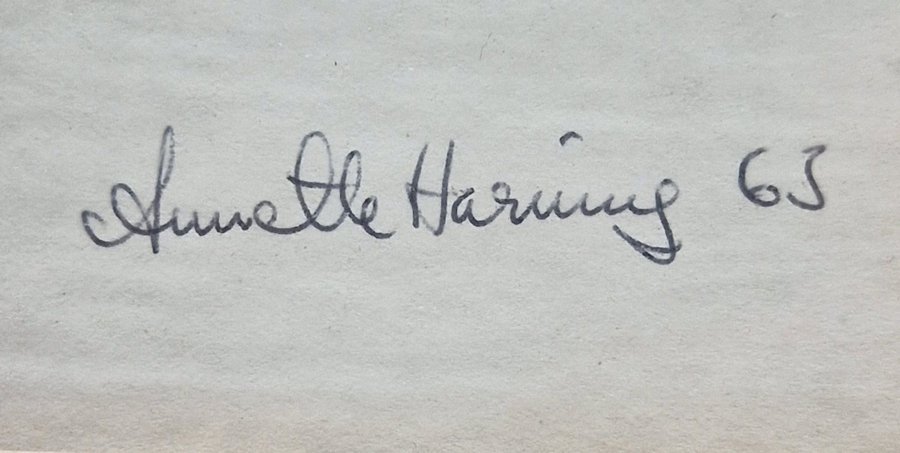 Annette Harning 63